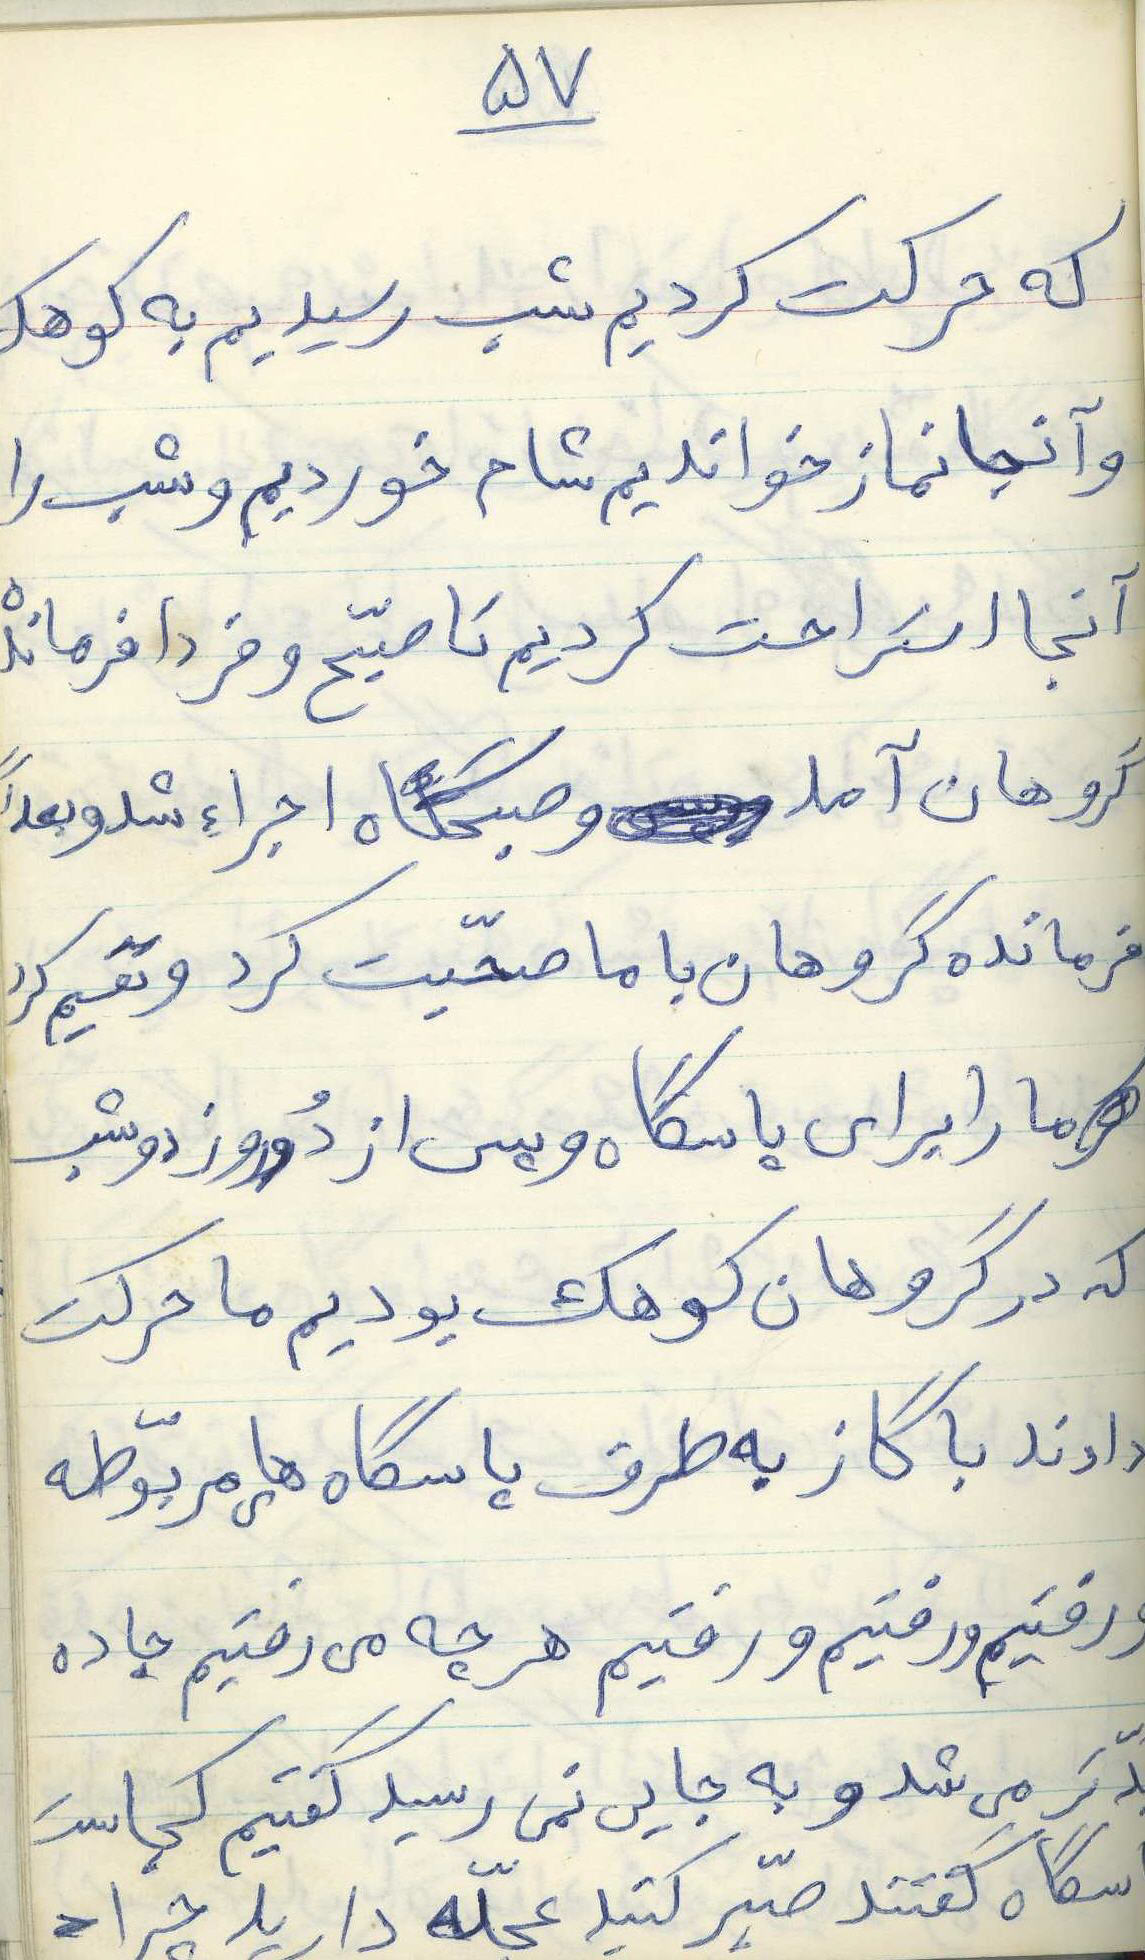 ۵۷
که حرکت کردیم شب رسیدیم به کوهک
و آنجا نماز خواندیم شام خوردیم و شب را
آنجا استراحت کردیم تا صبّح و فردا فرمانده
گروهان آمد و صبحگاه اجراء شد و بعداً
فرمانده گروهان با ما صحّبت کرد و تقسیم کرد
ما را برای پاسگاه و پس از دُو روز دو شب
که در گروهان کوهک بودیم ما حرکت
دادند با گاز به طرف پاسگاه های مربوّطه
و رفتیم و رفتیم و رفتیم هر چه می رفتیم جاده
بدّتر می شد و به جایی نمی رسید گفتیم کجاست
پاسگاه گفتند صبّر کنید عجلّه دارید چرا